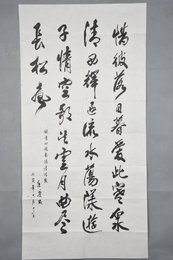 惜彼落日暮愛此寒泉
清西輝逐流水蕩漾遊
子情空歌望雲月曲盡
長松聲